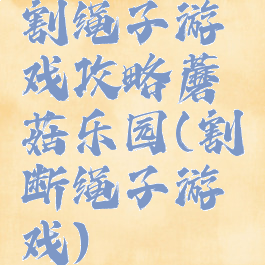 割绳子游
戏攻略蘑
菇乐园(割
断绳子游
戏)